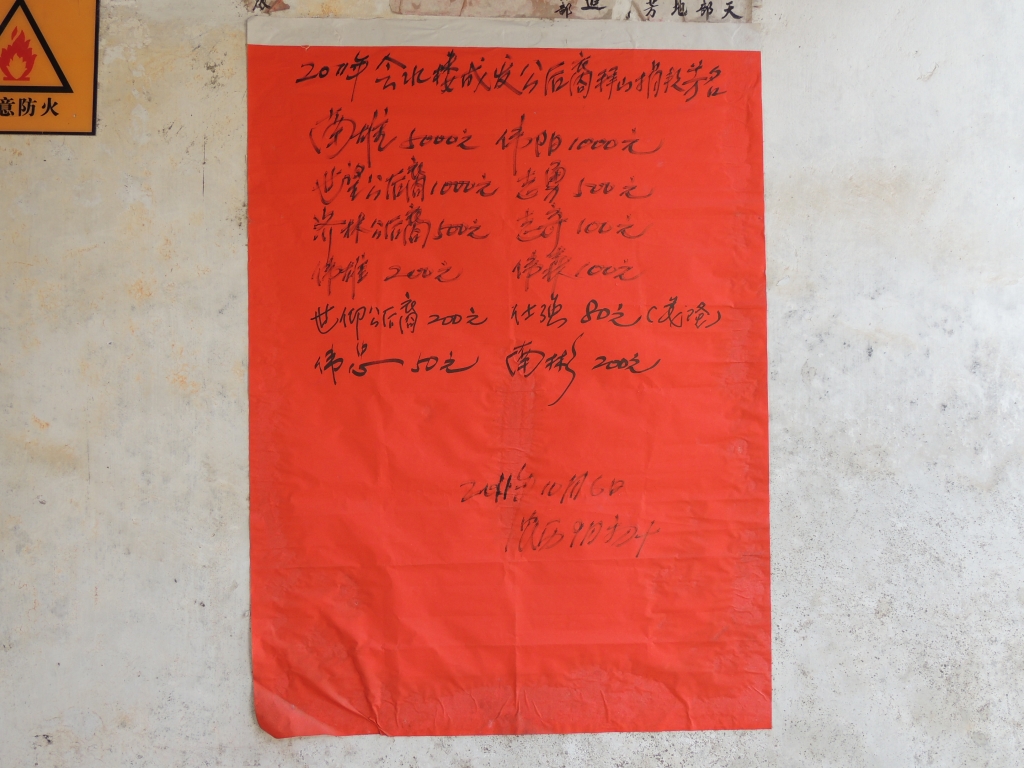 天部地芳
意防火
2011年会北楼成发公后裔拜山捐款芳名
南雄 5000元 伟阳 1000元
世望公后裔 1000元 志勇 500元
林公后裔 500元 志奇 100元
伟雄 200元 伟森 100元
世仰公后裔 200元 仕强 80元
伟忠 50元 南彬 200元
2011年10月6日
农历9月